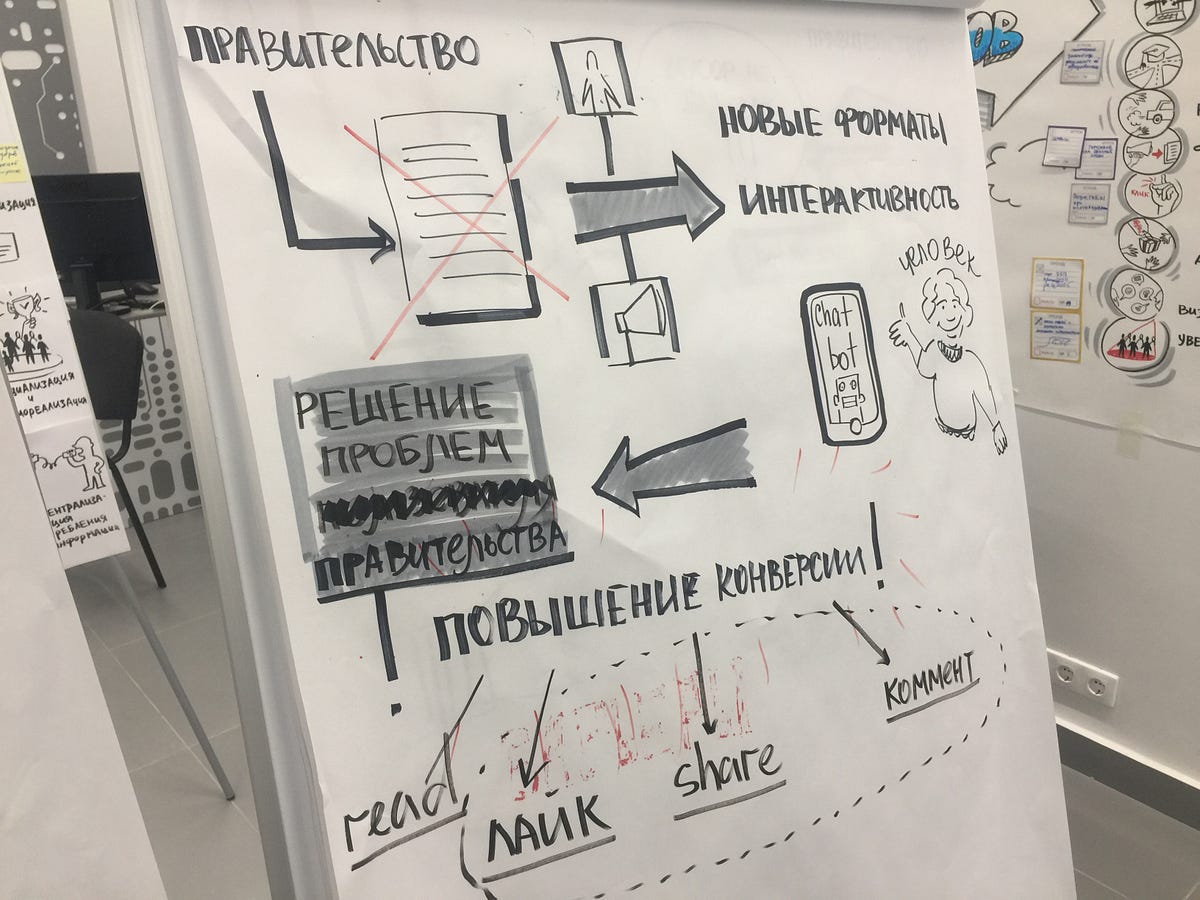 ПРАВИТЕЛЬСТВО
НОВЫЕ ФОРМАТЫ
ИНТЕРАКТИВНОСТЬ
человек
chat
bot
РЕШЕНИЕ
ПРОБЛЕМ
ПРАВИТЕЛЬСТВА
ПОВЫШЕНИЕ КОНВЕРСИИ!
read,
ЛАИК
share
КОММЕНТ
ОВ
ИЗАЦИЯ
ЦИАЛИЗАЦИЯ
И
МОРЕАЛИЗАЦИЯ
ЕНТРАЛИЗА-
ЦИЯ
РЕБЛЕНИЯ
НФОРМАЦИИ
ВИЗ
УВЕ